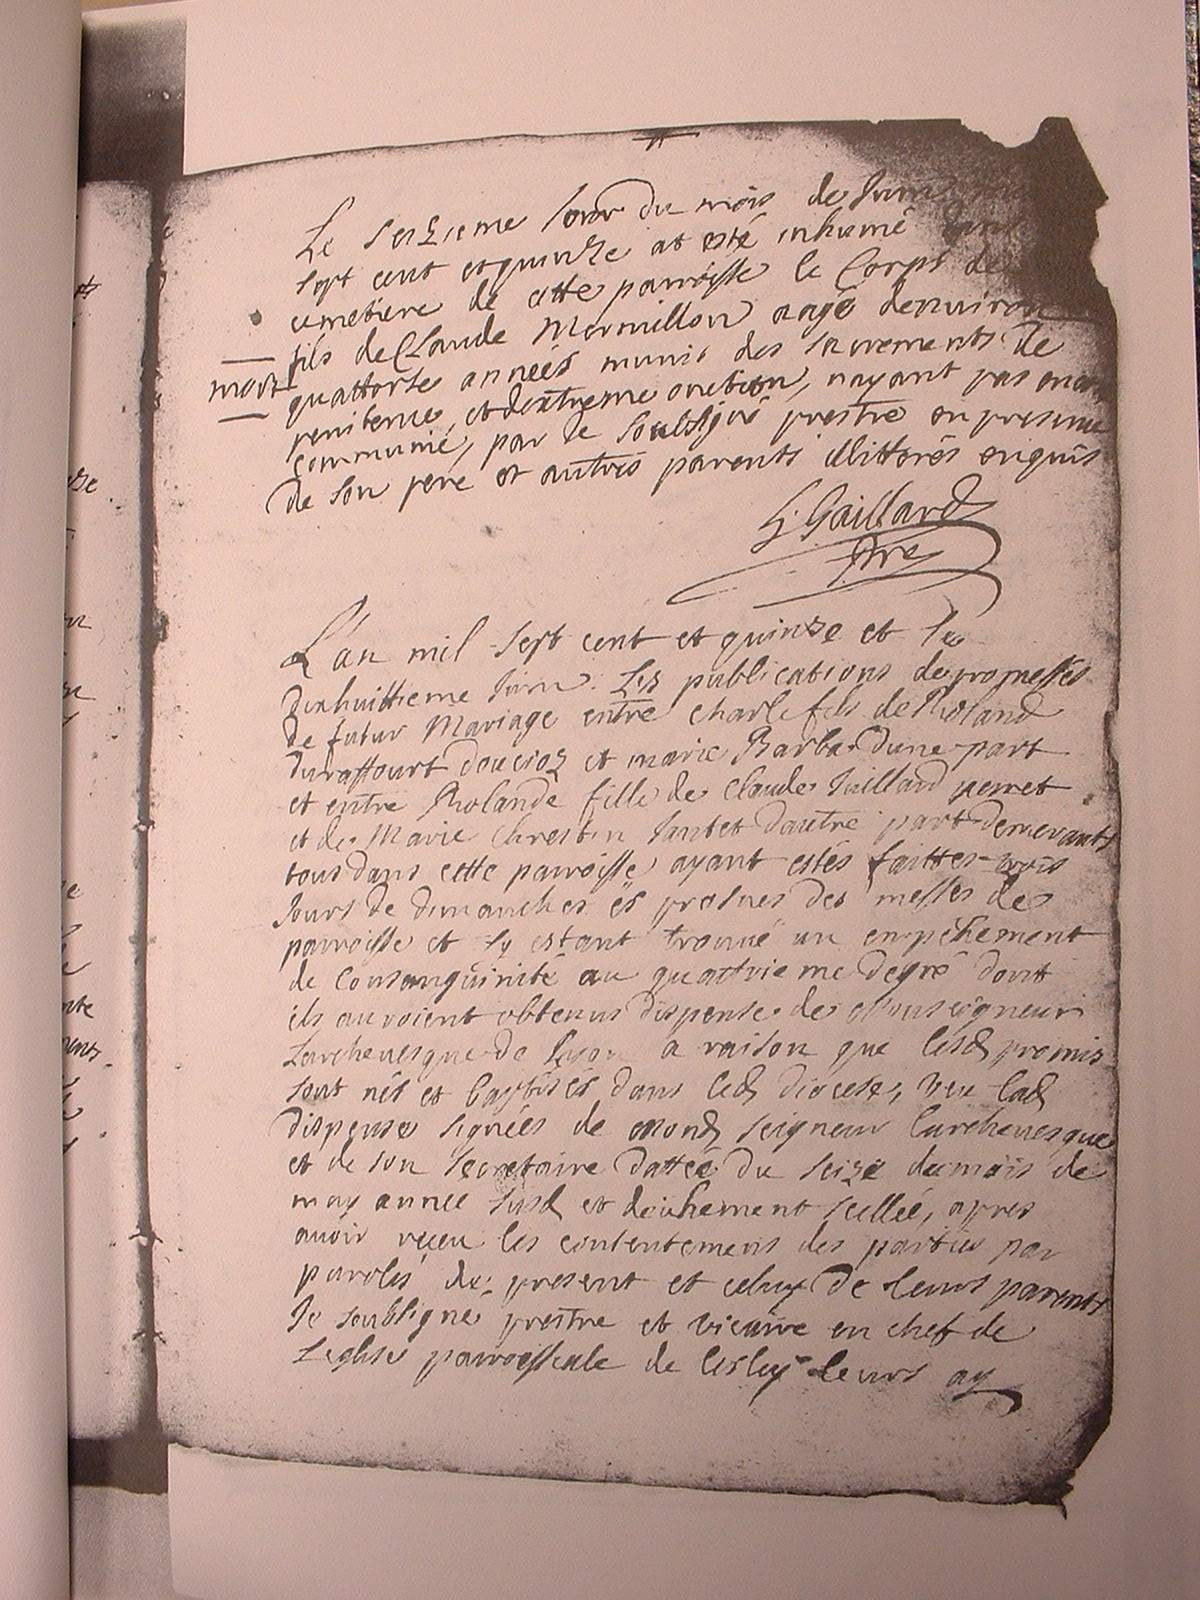 Le seizieme Jour du mois de Juin
sept cent et quinze at esté inhumé dans
cimetiere de cette parroisse le Corps de
fils de Claude Mermillon aagé denuiron
mort
quattorse années munis des sacrements de
penitence et dextreme onction, nayant pas encor
communié, par le soubsigné prestre en presence
de son pere et autres parents illitterés enquis
G. Gaillard
Ptre
L'an mil sept cent et quinze et le
dixhuittieme Juin. Les publications de promesses
de futur Mariage entre Charle fils de Roland
duraffourt doucroz et marie Barbe dune part
et entre Rolande fille de Claude Juillard perret
et de Marie Chrestin Jantet dautre part demeurants
tous dans cette parroisse ayant estés faittes trois
Jours de dimanches és prosnes des messes de
parroisse et sy estant trouué un enpéchement
de consanguinité au quattrieme degré dont
ils auroient obtenus dispense de Monseigneur
Larcheuesque de Lyon a raison que lesd promis
sont nés et baptisés dans led diocese, veu lad
dispense signées de mond seigneur Larcheuesque
et de son secretaire dattée du seize du mois de
may année susd et deuhement scellée, apres
auoir receu les contentements des parties par
parolés de present et celuy de leurs parents
Je soubsigné prestre et vicaire en chef de
Leglise parroissiale de Leslay leurs ay